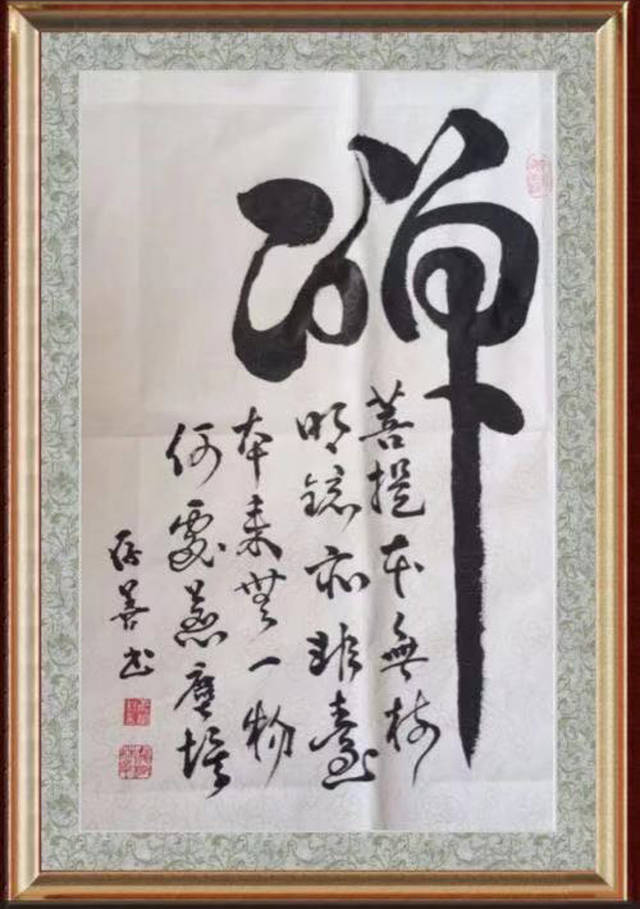 禅
菩提本無樹
明鏡亦非臺
本来無一物
何處惹塵埃
存善书